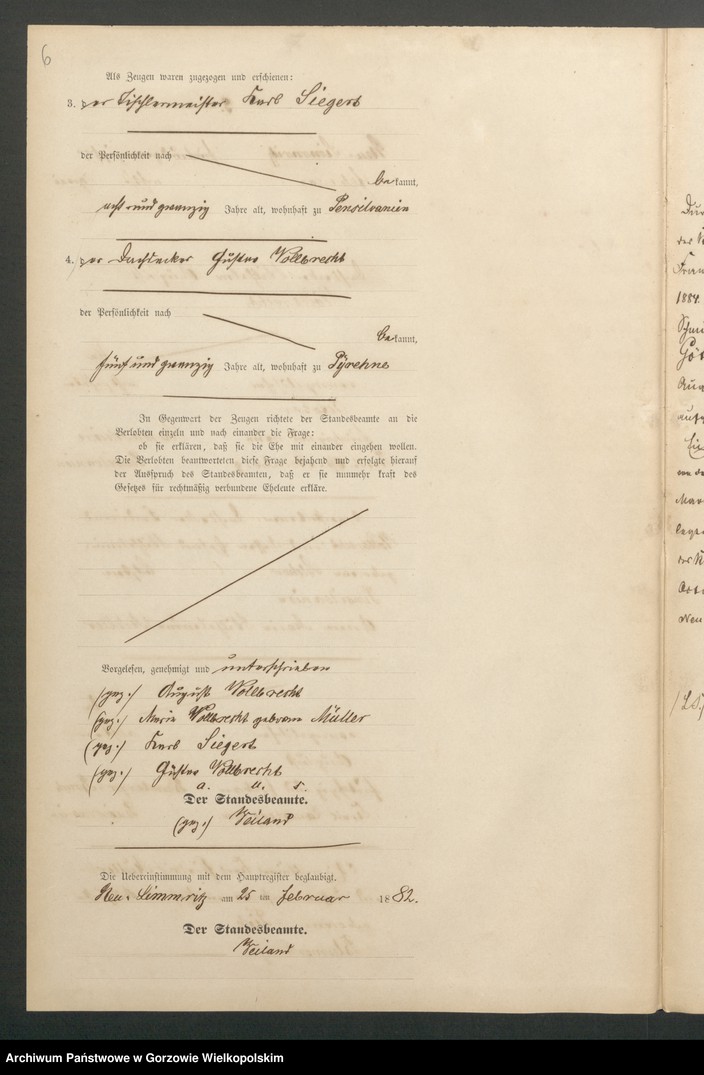 6
Als Zeugen waren zugezogen und erschienen:
3. der Tischlermeister Karl Siegert
der Persönlichkeit nach
bekannt,
acht und zwanzig Jahre alt, wohnhaft zu Pensilvanien
4. der Dachdecker Gustav Vollbrecht
der Persönlichkeit nach
bekannt,
fünf und zwanzig Jahre alt, wohnhaft zu Pyrehne
In Gegenwart der Zeugen richtete der Standesbeamte an die
Verlobten einzeln und nach einander die Frage:
ob sie erklären, daß sie die Ehe mit einander eingehen wollen.
Die Verlobten beantworteten diese Frage bejahend und erfolgte hierauf
der Ausspruch des Standesbeamten, daß er sie nunmehr kraft des
Gesetzes für rechtmäßig verbundene Eheleute erkläre.
Vorgelesen, genehmigt und unterschrieben
(gez.) August Vollbrecht
(gez.) Marie Vollbrecht geborene Müller
(gez.) Karl Siegert
(gez.) Gustav Vollbrecht
a. u. s.
Der Standesbeamte.
(gez.) Weiland
Die Uebereinstimmung mit dem Hauptregister beglaubigt.
Neu-Limmritz am 25 ten Februar 1882.
Der Standesbeamte.
Weiland
1884.
Archiwum Państwowe w Gorzowie Wielkopolskim